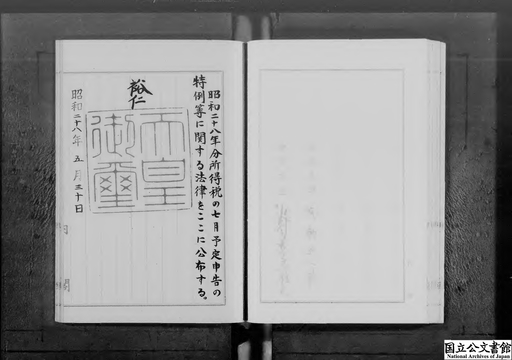 昭和二十八年分所得税の七月予定申告の
特例等に関する法律をここに公布する。
裕仁
天皇
御璽
昭和二十八年五月三十日
国立公文書館
National Archives of Japan